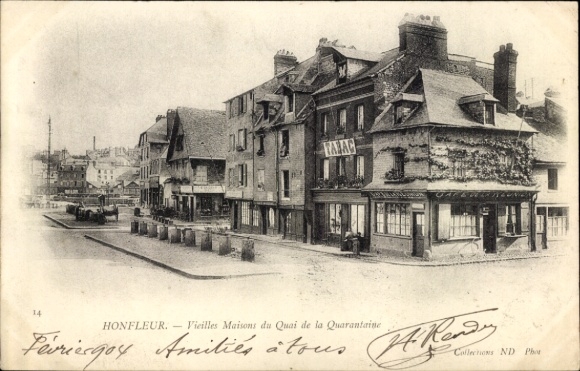 TABAC
14
HONFLEUR. — Vieilles Maisons du Quai de la Quarantaine
Collections ND Phot
Février 904 Amitiés à tous